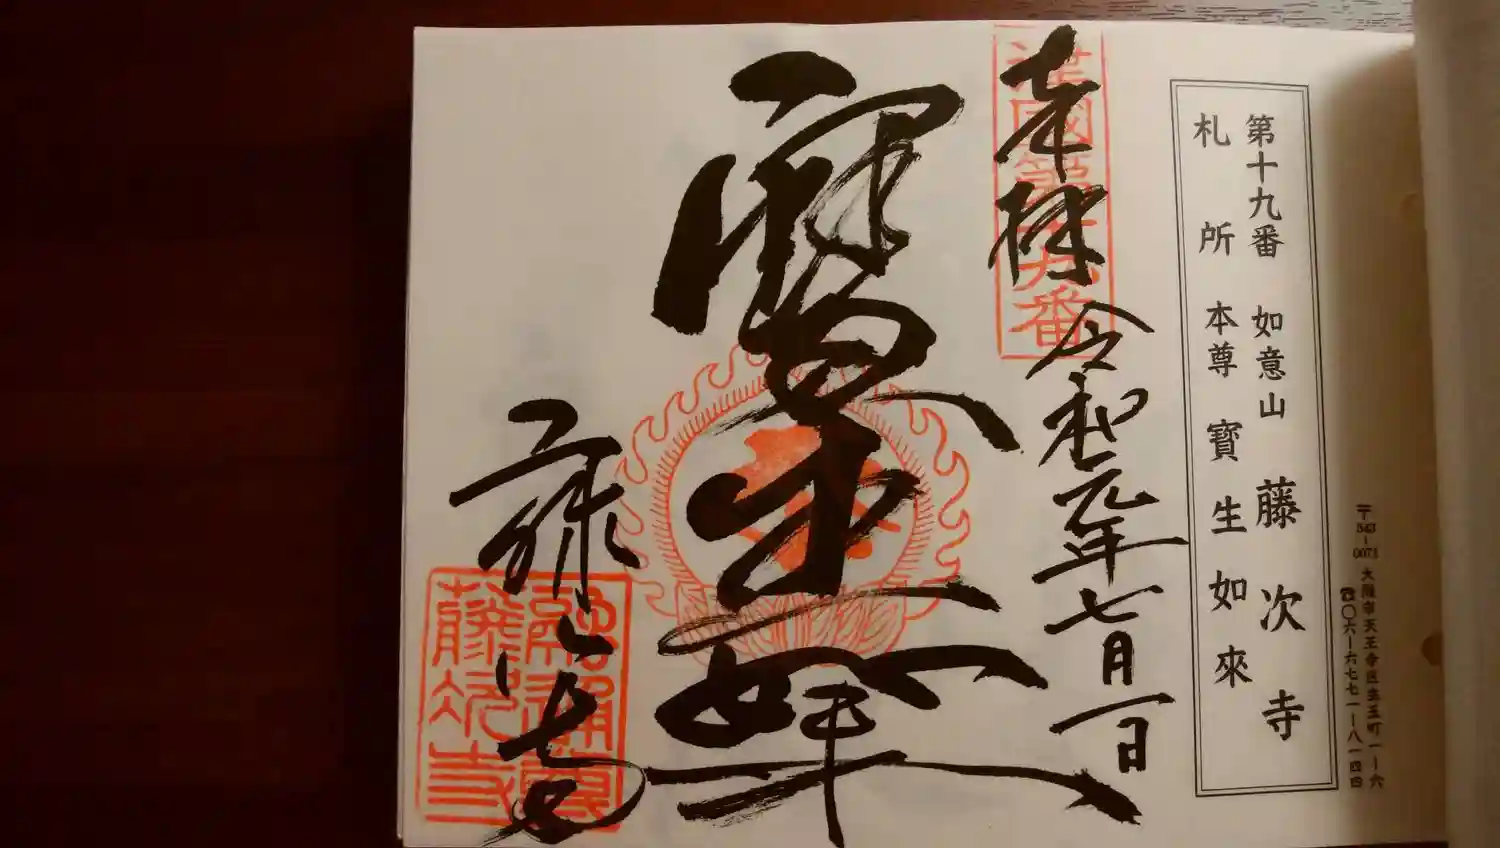 〒543-0073 大阪市天王寺区生玉町一ー六
☎〇六ー六七七一ー八一四四
第十九番 如意山 藤次寺
札所 本尊 寶生如來
奉拝
令和元年七月一日
寶生如来
藤次寺
第九番
藤次寺